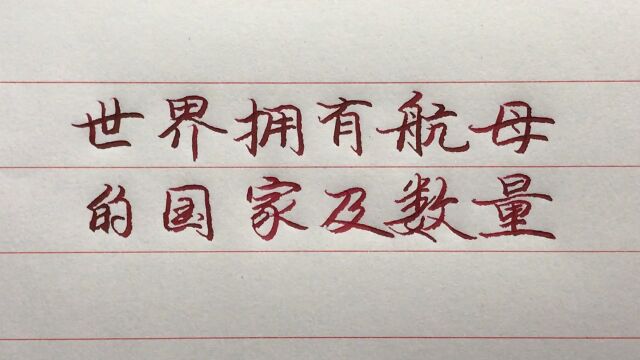 世界拥有航母
的国家及数量